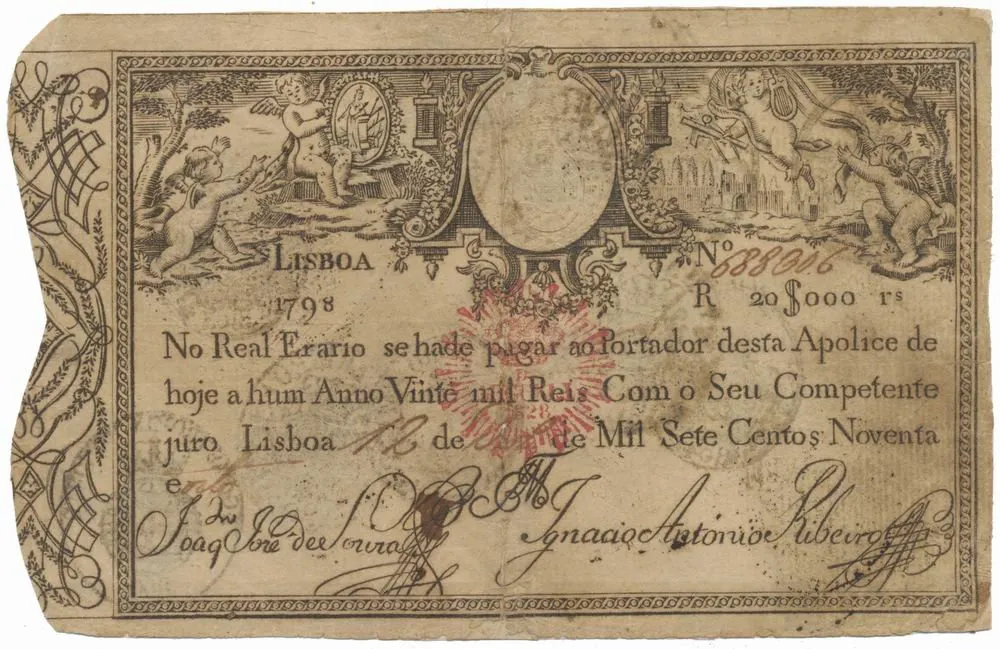 LISBOA
Nº 688006
1798
R 20$000 rs
No Real Erario se hade pagar ao Portador desta Apolice de
hoje a hum Anno Vinte mil Reis Com o Seu Competente
juro Lisboa 12 de de Mil Sete Centos Noventa
e
28
Joaq Jose de Souza
Ignacio Antonio Ribeiro